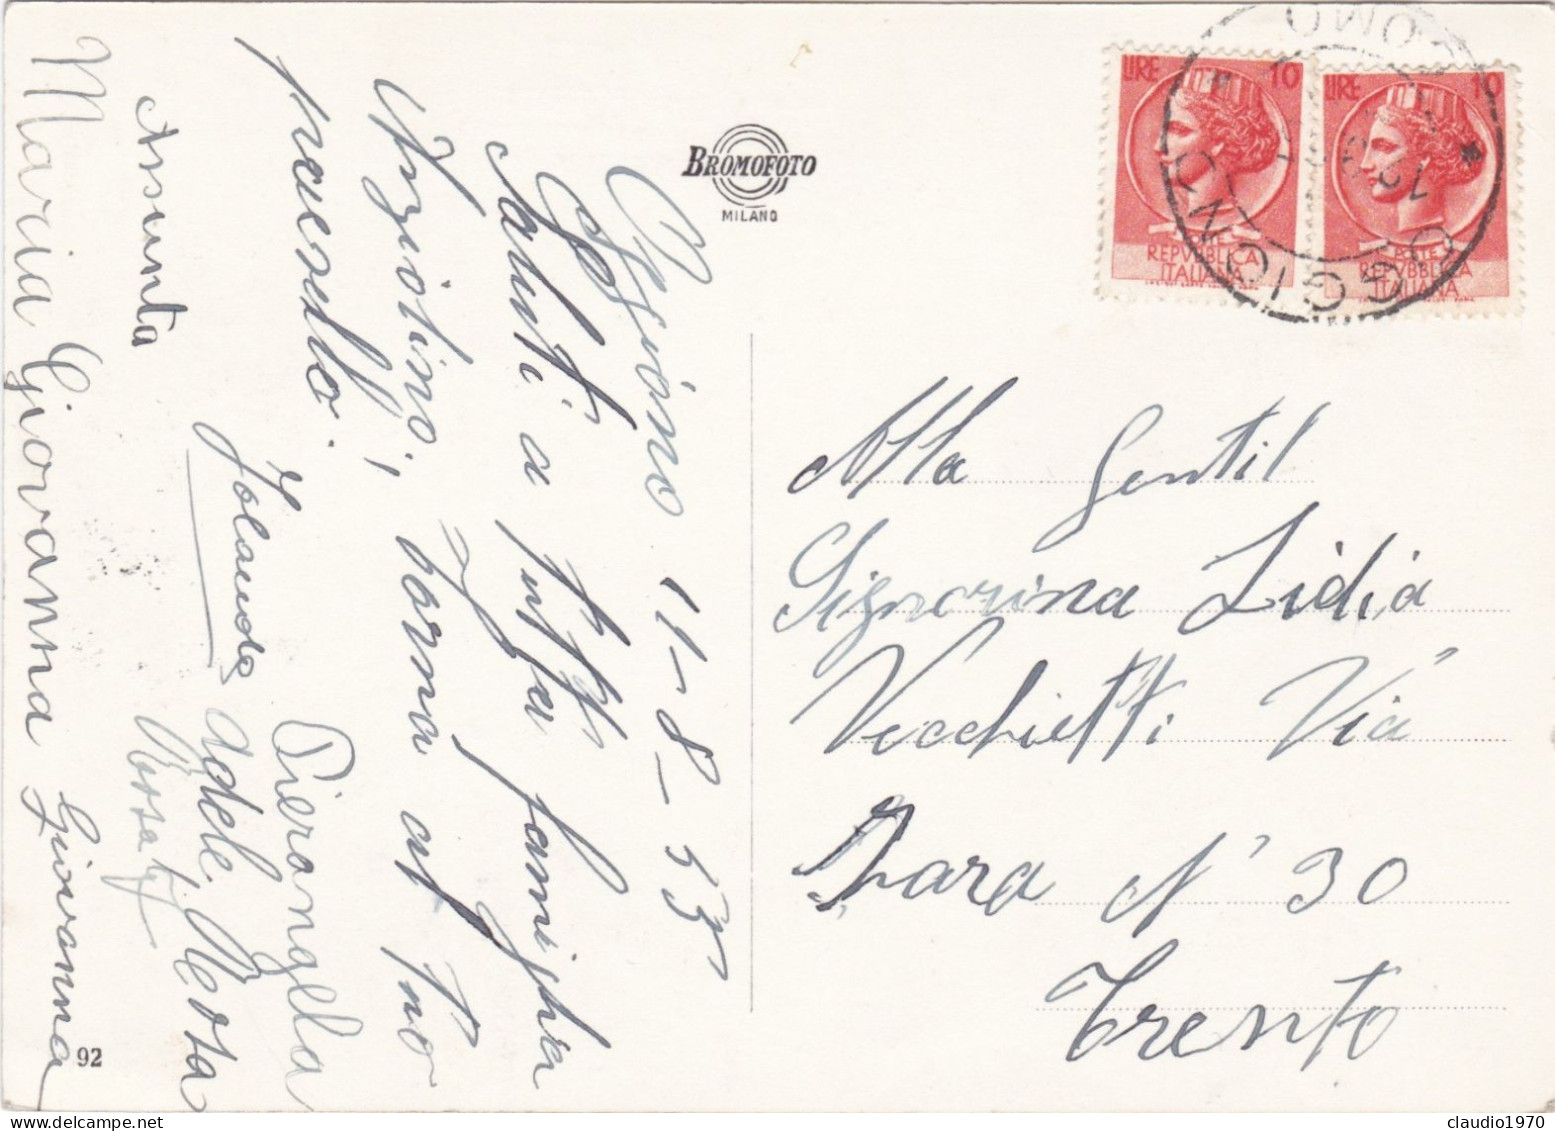 Oggiono 11-8-55
Saluti a tutta famiglia
torna al tuo
paesello.
Assunta
Jolanda
Pierangela
Adele
Rosa
Maria Giovanna
Giovanna
92
BROMOFOTO
MILANO
LIRE 10
REPVBBLICA
ITALIANA
LIRE 10
POSTE
REPVBBLICA
ITALIANA
OGGIONO COMO
Alla Gentil
Signorina Lidia
Vecchietti Via
Zara N° 30
Trento
claudio1970